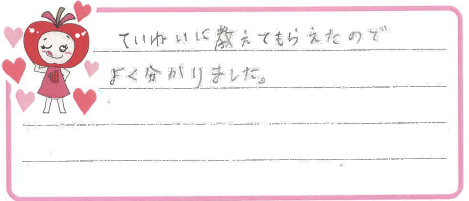 ていねいに教えてもらえたので
よく分かりました。